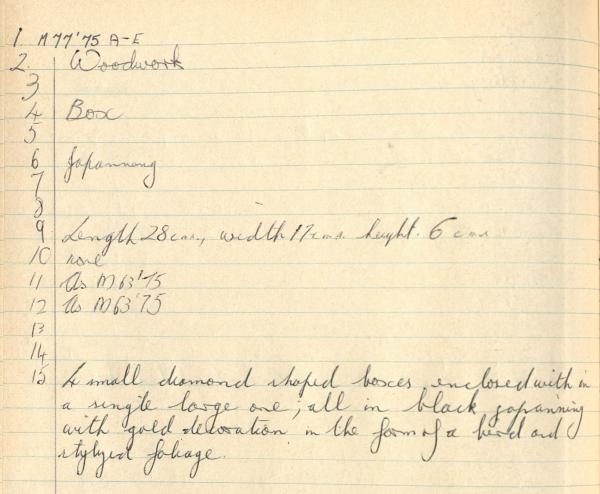 1. M77'75 A-E
2. Woodwork
3
4 Box
5
6 Japanning
7
8
9 Length 28cms, width 17cms. height. 6 cms
10 none
11 As M63'75
12 As M63'75
13
14
15 4 small diamond shaped boxes enclosed with in
a single large one; all in black japanning
with gold decoration in the form of a bird and
stylyzed foliage.